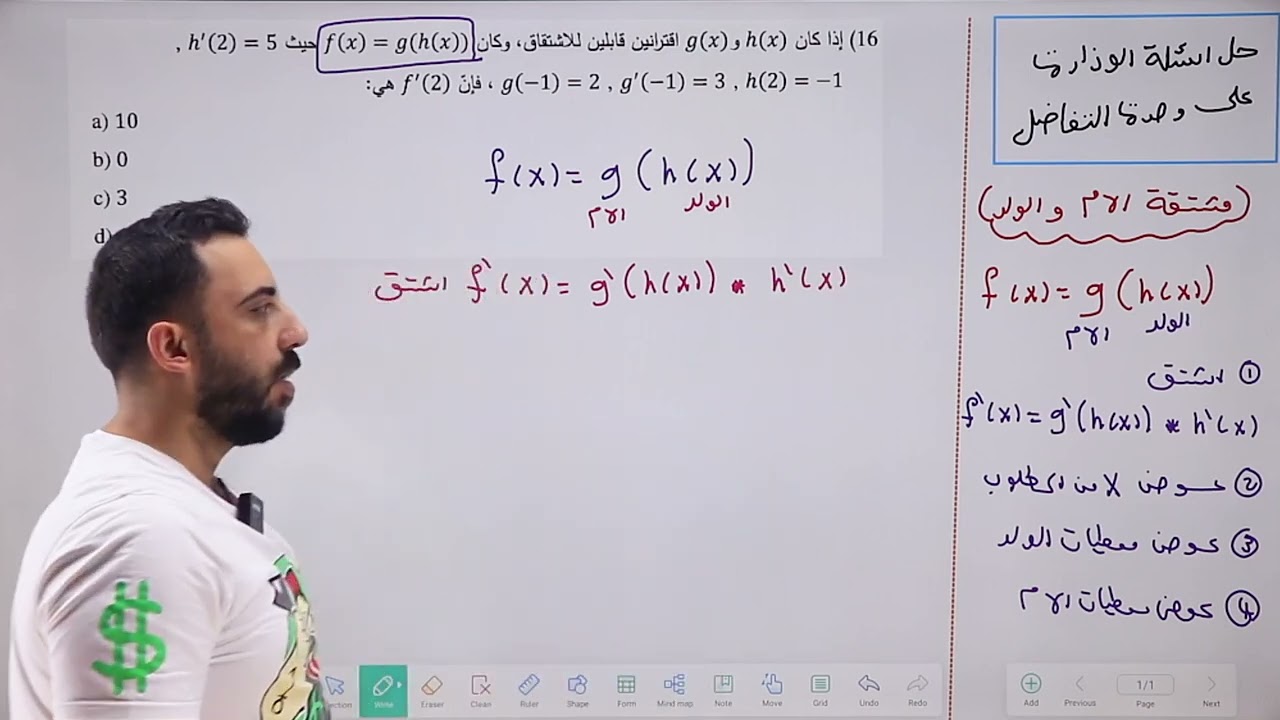 16) إذا كان h(x) و g(x) اقترانين قابلين للاشتقاق، وكان f(x) = g(h(x)) حيث h′(2) = 5 ,
g(−1) = 2 , g′(−1) = 3 , h(2) = −1 ، فإنّ f′(2) هي:
a) 10
b) 0
c) 3
d)
f(x) = g (h(x))
الأم الولد
اشتق f`(x) = g`(h(x)) * h`(x)
حل اسئلة الوزارة
على وحدة التفاضل
(مشتقة الأم والولد)
f(x) = g (h(x))
الأم الولد
① اشتق
f`(x) = g`(h(x)) * h`(x)
② عوض x من المطلوب
③ عوض معطيات الولد
④ عوض معطيات الأم
$
Write
Eraser
Clean
Ruler
Shape
Form
Mind map
Note
Move
Grid
Undo
Redo
Add
Previous
1/1
Page
Next